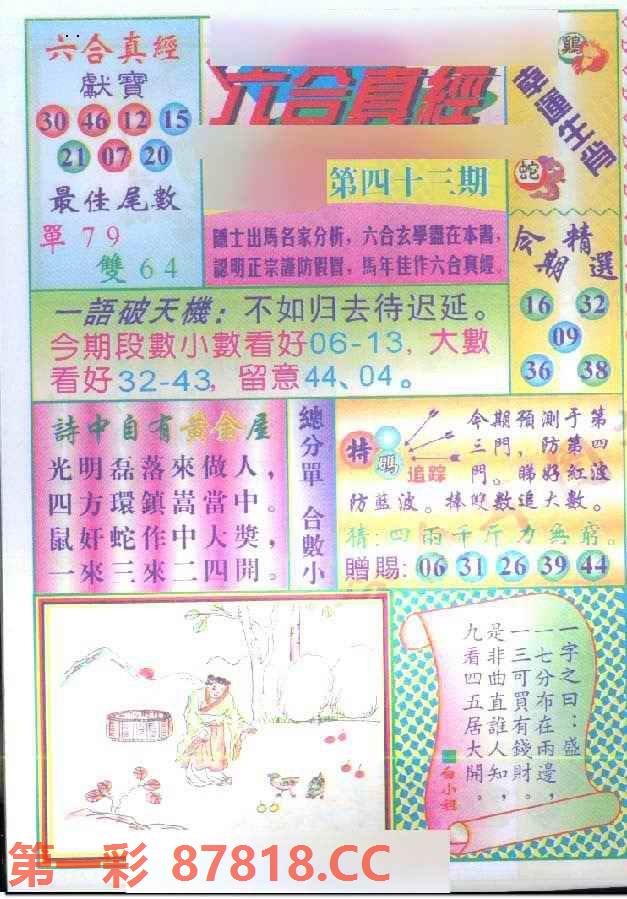 六合真經
獻寶
30 46 12 15
21 07 20
最佳尾數
單79
雙64
六合真經
第四十三期
隱士出馬名家分析，六合玄學盡在本書，
認明正宗謹防假冒，馬年佳作六合真經
鷄
蛇
今期
精選
16 32
09
36 38
一語破天機：不如归去待迟延。
今期段數小數看好06-13，大數
看好32-43，留意44、04。
詩中自有黃金屋
光明磊落來做人，
四方環鎮嵩當中。
鼠奸蛇作中大獎，
一來三來二四開。
總分單
合數小
特碼
追踪
今期預測于第
三門，防第四
門。睇好紅波
防藍波。捧雙數追大數。
猜：四兩千斤力無窮。
贈賜：06 31 26 39 44
一字之曰：盛
一七分布在兩邊，
一三可買有錢財。
是非曲直誰人知，
九看四五居大開。
白小姐
第一彩 87818.CC